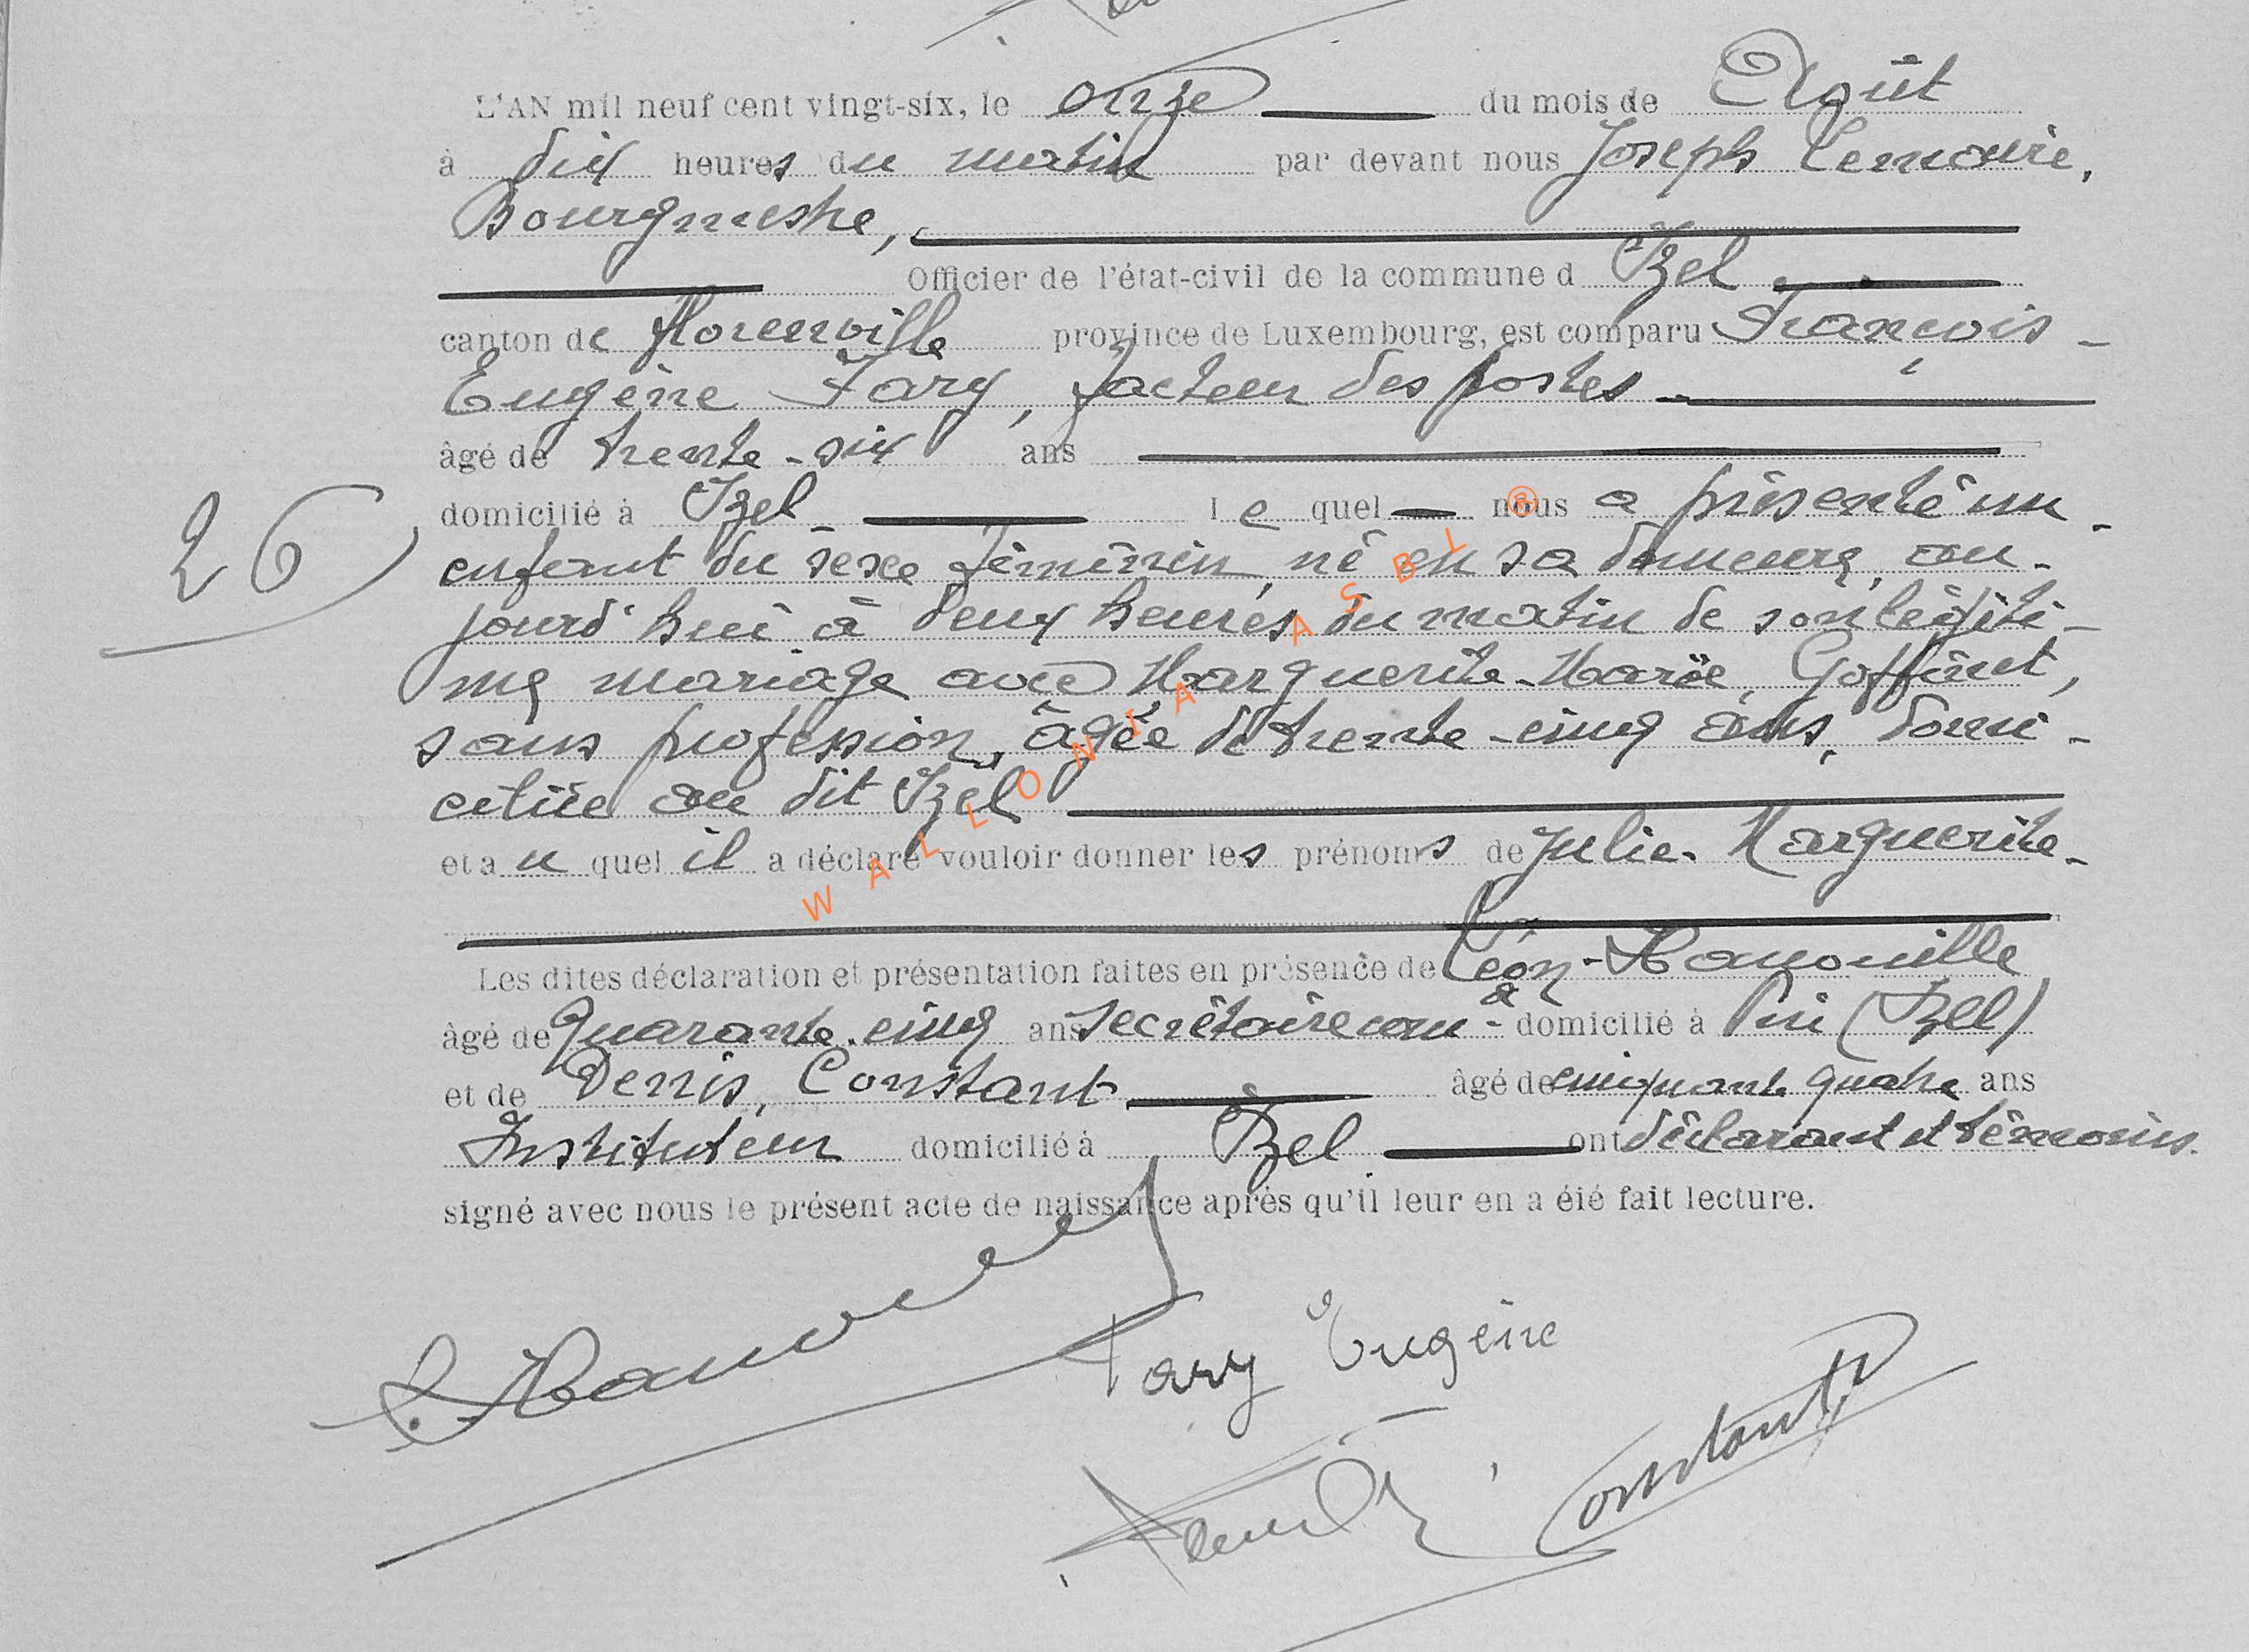 L'AN mil neuf cent vingt-six, le onze du mois de Août
à dix heures du matin par devant nous Joseph Lemaire,
Bourgmestre,
Officier de l'état-civil de la commune d Izel
canton de Florenville province de Luxembourg, est comparu François-
Eugène Jary, facteur des postes
âgé de trente-six ans
domicilié à Izel le quel nous a présenté un
26
enfant du sexe féminin, né en sa demeure, au-
jourd'hui à deux heures du matin de son légiti-
me mariage avec Marguerite-Marie, Goffinet,
sans profession, âgée de trente-cinq ans, domi-
ciliée au dit Izel
et a u quel il a déclaré vouloir donner les prénoms de Julie-Marguerite-
Les dites déclaration et présentation faites en présence de Léon
âgé de Quarante-cinq ans secrétaire com-al domicilié à Pin (Izel)
et de Denis, Constant âgé de cinquante quatre ans
Instituteur domicilié à Izel ont déclarant et témoins.
signé avec nous le présent acte de naissance après qu'il leur en a été fait lecture.
Jary Eugène
Constant
WALLONIA ASBL ®